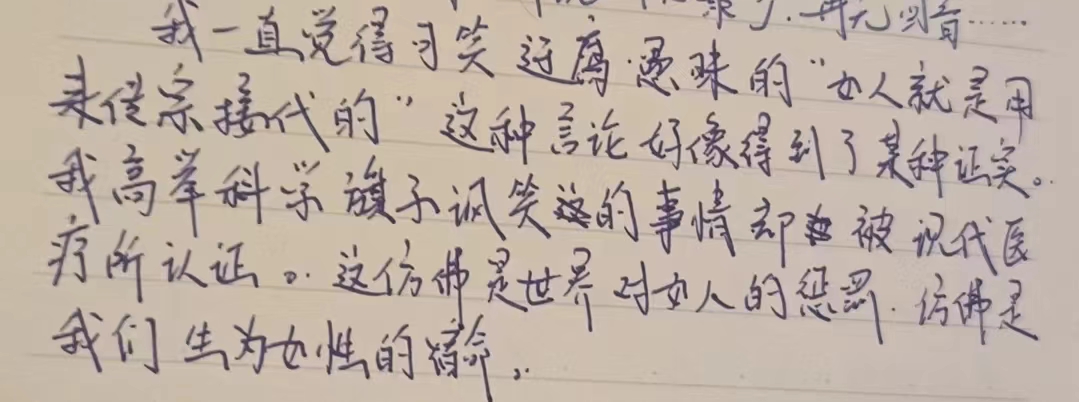 了.再无回音……
我一直觉得可笑迂腐·愚昧的“女人就是用
来传宗接代的”这种言论好像得到了某种证实。
我高举科学旗子讽笑的事情却被现代医
疗所认证。这仿佛是世界对女人的惩罚.仿佛是
我们生为女性的宿命。